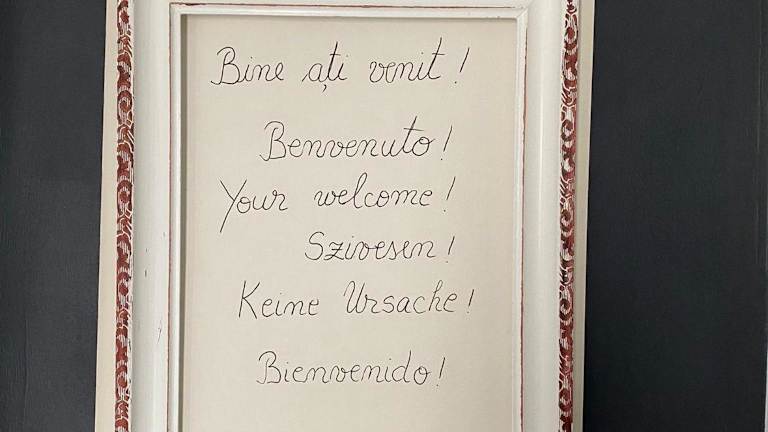 Bine ați venit!
Benvenuto!
Your welcome!
Szivesen!
Keine Ursache!
Bienvenido!